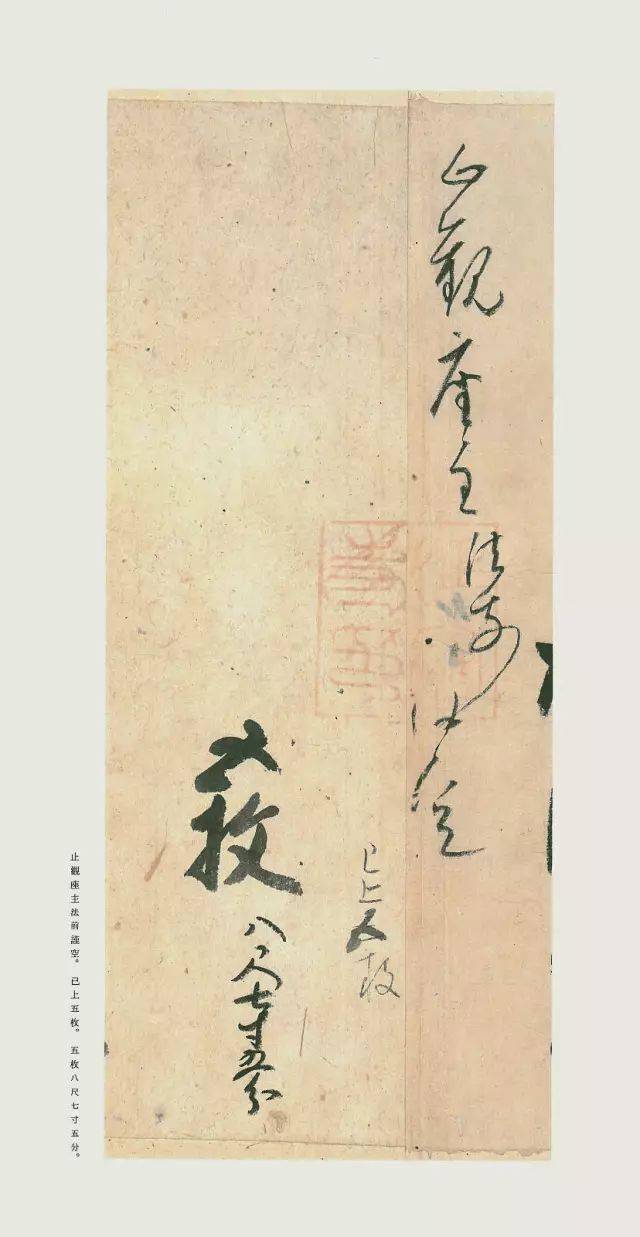 止觀座主法前謹空
已上五枚
五枚八尺七寸五分
止觀座主法前謹空。已上五枚。五枚八尺七寸五分。